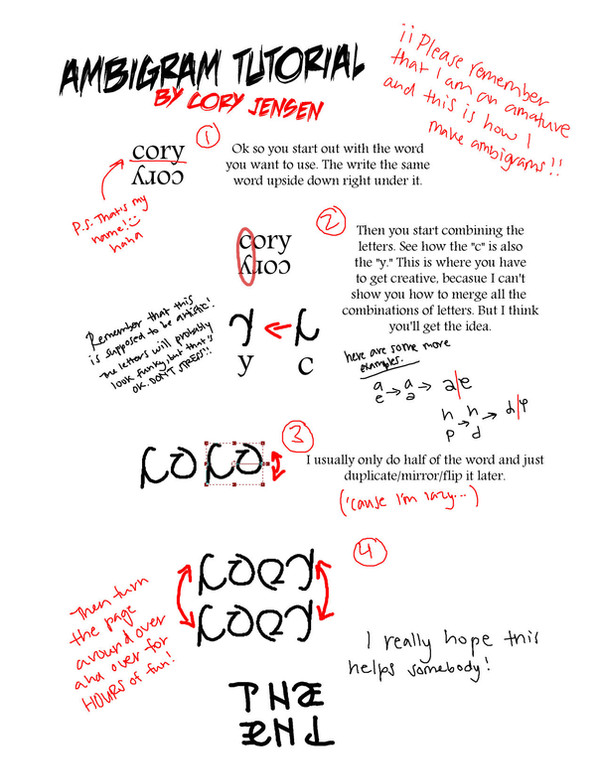 AMBIGRAM TUTORIAL
BY CORY JENSEN
¡¡Please remember
that I am an amature
and this is how I
make ambigrams!!
1
cory
cory
P.S. That's my
name! :)
haha
Ok so you start out with the word
you want to use. The write the same
word upside down right under it.
2
cory
cory
Then you start combining the
letters. See how the "c" is also
the "y." This is where you have
to get creative, becasue I can't
show you how to merge all the
combinations of letters. But I think
you'll get the idea.
Remember that this
is supposed to be artistic!
The letters will probably
look funky, but that's
OK. DON'T STRESS!!
y c
here are some more
examples.
a → a → a/e
e a
h → h → d/p
p d
3
I usually only do half of the word and just
duplicate/mirror/flip it later.
('cause I'm lazy...)
4
cory
cory
Then turn
the page
around over
and over for
HOURS of fun!
I really hope this
helps somebody!
THE
THE